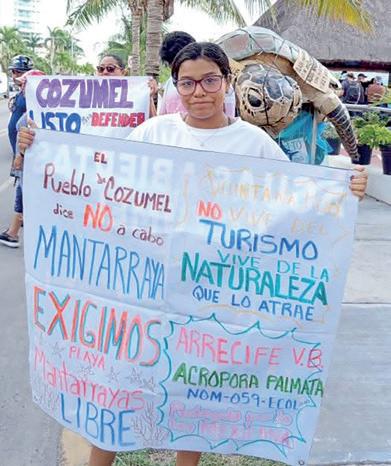 COZUMEL
LISTO PARA DEFENDER
EL
Pueblo de COZUMEL
dice NO a cabo
MANTARRAYA
EXIGIMOS
PLAYA
Mantarrayas
LIBRE
QUINTANA ROO
NO VIVE DEL
TURISMO
VIVE DE LA
NATURALEZA
QUE LO ATRAE
ARRECIFE V.B.
ACROPORA PALMATA
NOM-059-ECOL